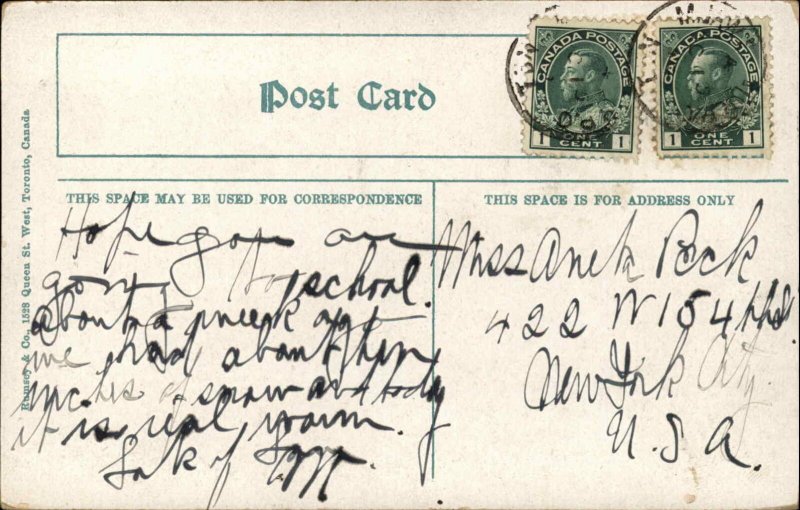 CANADA POSTAGE
1 ONE CENT 1
CANADA POSTAGE
1 ONE CENT 1
Post Card
Rumsey & Co., 1528 Queen St. West, Toronto, Canada
THIS SPACE MAY BE USED FOR CORRESPONDENCE
Hope you are
going to school.
about a week ago
we had about then
inches of snow and today
it is real warm.
of
THIS SPACE IS FOR ADDRESS ONLY
Miss Peck
422 W 154
New York City
U.S.A.